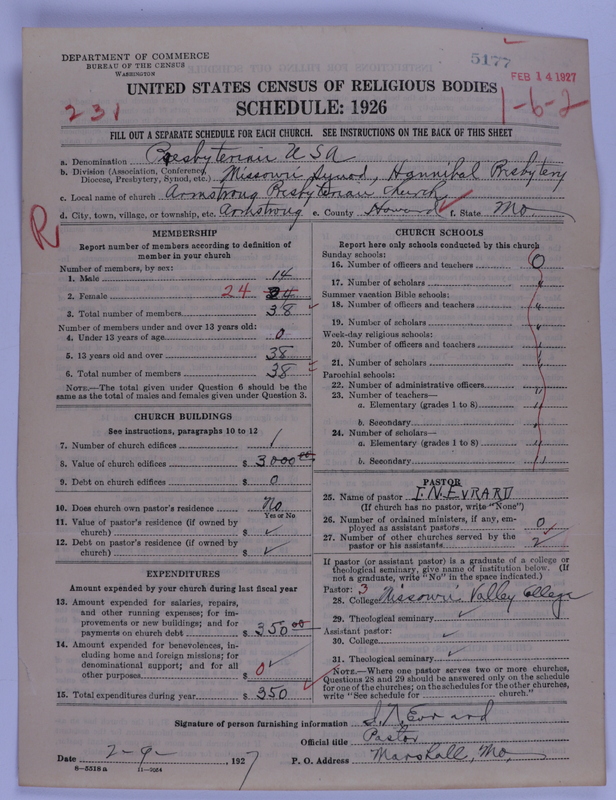 DEPARTMENT OF COMMERCE
BUREAU OF THE CENSUS
WASHINGTON
5177
FEB 14 1927
UNITED STATES CENSUS OF RELIGIOUS BODIES
231
SCHEDULE: 1926
1-6-2
FILL OUT A SEPARATE SCHEDULE FOR EACH CHURCH. SEE INSTRUCTIONS ON THE BACK OF THIS SHEET
a. Denomination Presbyterian USA
b. Division (Association, Conference, Diocese, Presbytery, Synod, etc.) Missouri Synod, Hannibal Presbytery
c. Local name of church Armstrong Presbyterian Church
d. City, town, village, or township, etc. Armstrong e. County Howard f. State Mo.
R
MEMBERSHIP
Report number of members according to definition of
member in your church
Number of members, by sex:
1. Male 14
2. Female 24 24
3. Total number of members 38
Number of members under and over 13 years old:
4. Under 13 years of age 0
5. 13 years old and over 38
6. Total number of members 38
NOTE.—The total given under Question 6 should be the
same as the total of males and females given under Question 3.
CHURCH BUILDINGS
See instructions, paragraphs 10 to 12
7. Number of church edifices 1
8. Value of church edifices $ 3000 00
9. Debt on church edifices $ 0
10. Does church own pastor's residence? No
Yes or No
11. Value of pastor's residence (if owned by
church) $ ✓
12. Debt on pastor's residence (if owned by
church) $ ✓
EXPENDITURES
Amount expended by church during last fiscal year
13. Amount expended for salaries, repairs,
and other running expenses; for im-
provements or new buildings; and for
payments on church debt $ 350 00
14. Amount expended for benevolences, in-
cluding home and foreign missions; for
denominational support; and for all
other purposes $ 0 ✓
15. Total expenditures during year $ 350
CHURCH SCHOOLS
Report here only schools conducted by this church
Sunday schools:
16. Number of officers and teachers 0
17. Number of scholars "
Summer vacation Bible schools:
18. Number of officers and teachers "
19. Number of scholars "
Week-day religious schools:
20. Number of officers and teachers "
21. Number of scholars "
Parochial schools:
22. Number of administrative officers "
23. Number of teachers—
a. Elementary (grades 1 to 8) "
b. Secondary "
24. Number of scholars—
a. Elementary (grades 1 to 8) "
b. Secondary "
PASTOR
25. Name of pastor I.N. EVRARD
(If church has no pastor, write "None")
26. Number of ordained ministers, if any, em-
ployed as assistant pastors 0
27. Number of other churches served by the
pastor or his assistants 2
If pastor (or assistant pastor) is a graduate of a college or
theological seminary, give name of institution below. (If
not a graduate, write "No" in the space indicated.)
Pastor: 3
28. College Missouri Valley College
29. Theological seminary ✓
Assistant pastor:
30. College ✓
31. Theological seminary ✓
NOTE.—Where one pastor serves two or more churches,
Questions 28 and 29 should be answered only on the schedule
for one of the churches; on the schedules for the other churches,
write "See schedule for church."
Signature of person furnishing information I. N. Evrard
Official title Pastor
Date 2-9- , 1927 P. O. Address Marshall, Mo.
8-5518a 11-9964